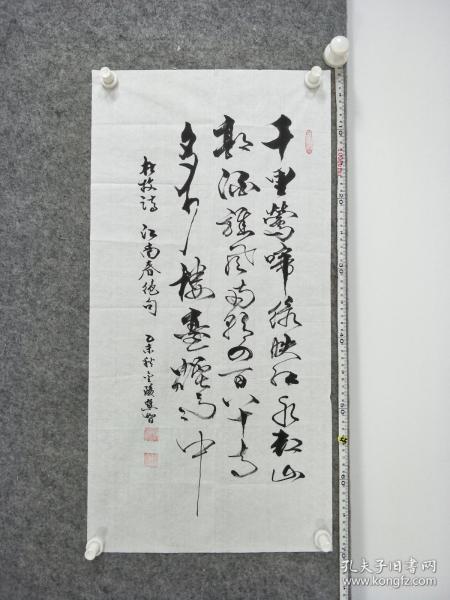 千里鶯啼綠映红水村山
郭酒旗风南朝四百八十寺
多少樓臺煙雨中
杜牧诗 江南春绝句 乙未秋金陵
孔夫子旧书网
www.kongfz.com